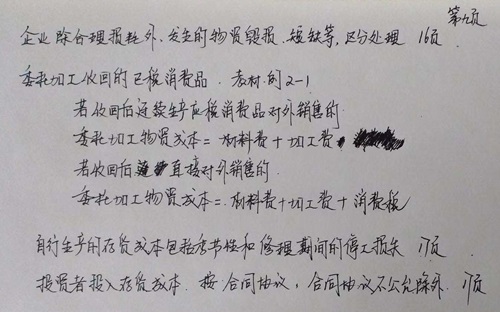 第九页
企业除合理损耗外、发生的物资毁损、短缺等,区分处理 16页
委托加工收回的已税消费品. 教材.例2-1
若收回后连续生产应税消费品对外销售的
委托加工物资成本=材料费+加工费
若收回后 直接对外销售的.
委托加工物资成本=.材料费+加工费+消费税
自行生产的存货成本包括季节性和修理期间的停工损失 17页
投资者投入存货成本. 按合同协议,合同协议不公允除外. 17页